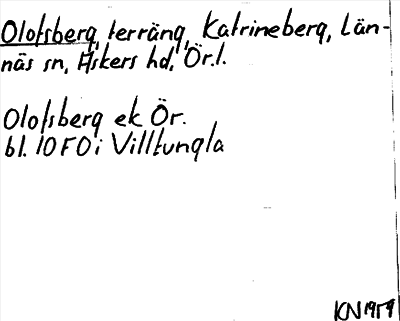 Olofsberg, terräng, Katrineberg, Län-
näs sn, Askers hd, Ör.l.
Olofsberg ek Ör.
bl. 10F0i Villtungla
KN 1959